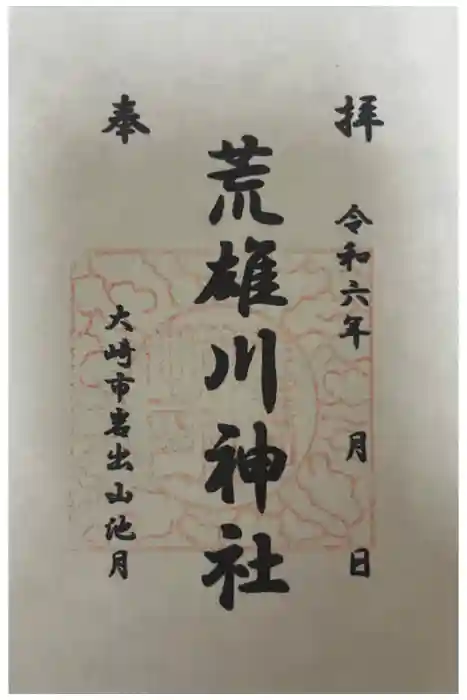 奉
拝
令和六年 月 日
荒雄川神社
大崎市岩出山池月